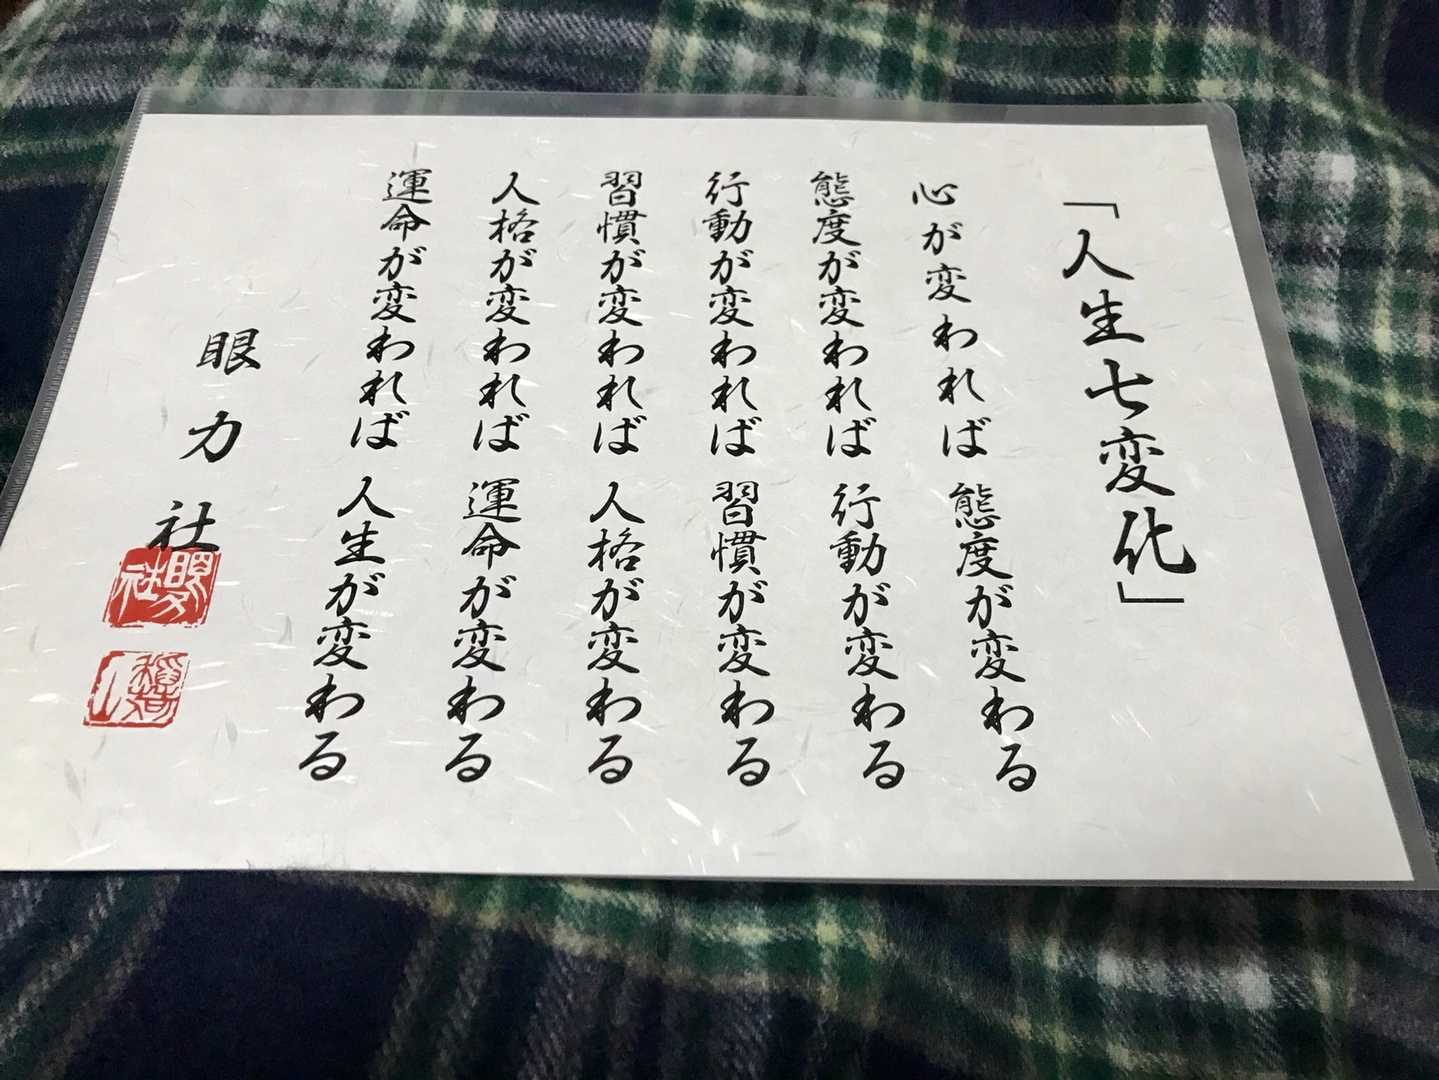 「人生七変化」
心が変われば 態度が変わる
態度が変われば 行動が変わる
行動が変われば 習慣が変わる
習慣が変われば 人格が変わる
人格が変われば 運命が変わる
運命が変われば 人生が変わる
眼力社
眼力社